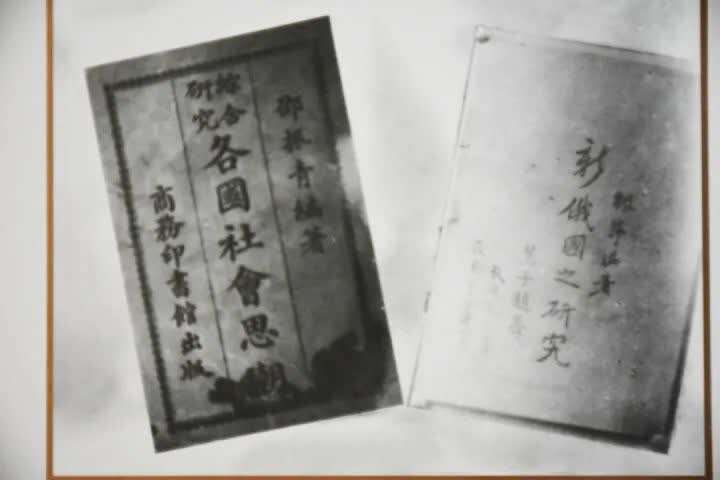 邵振青編著
綜合研究
各國社會思潮
商務印書館出版
振青編著
新俄國之研究